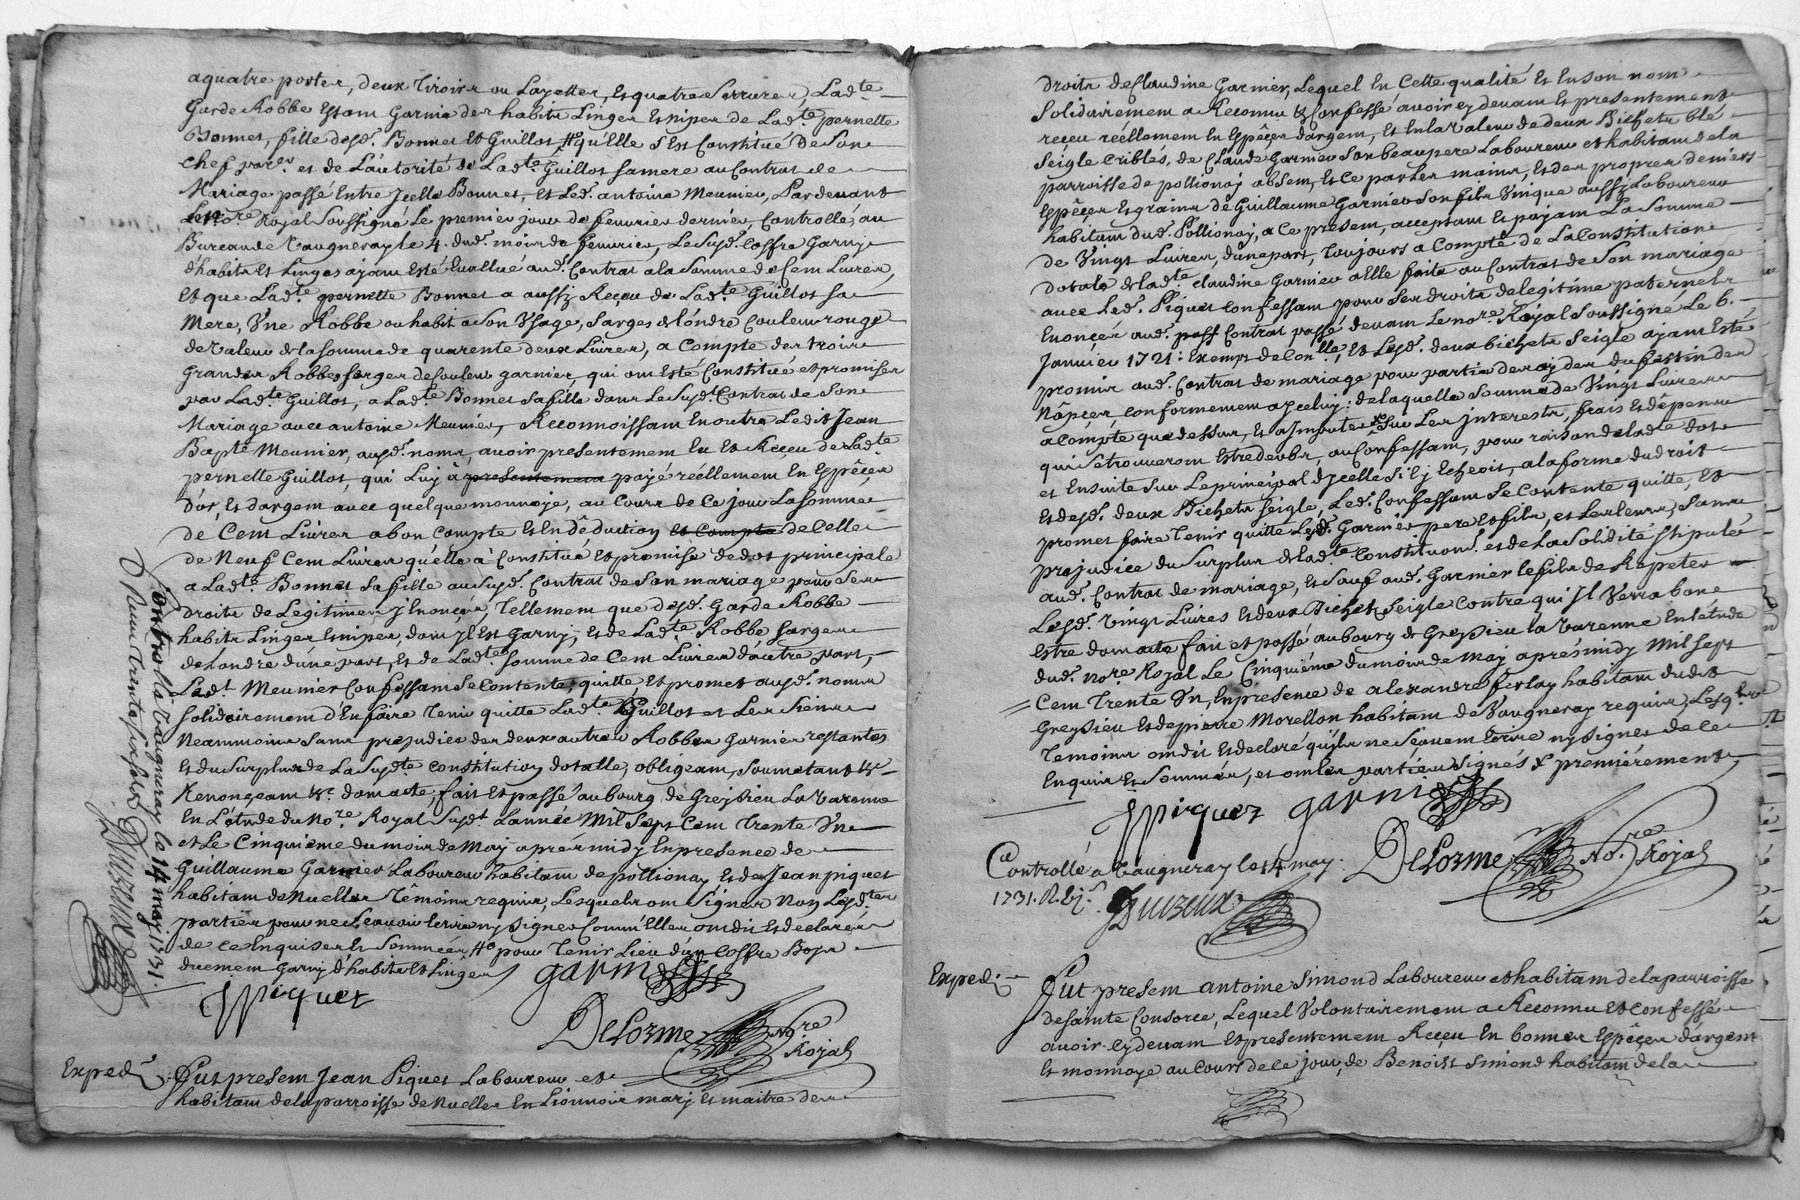 aquatre portes, deux Tiroirs ou Layettes, Et quatre Serrures, Lad.te
Garde Robbe Estant Garnie des habits Linges Et nipes de Lad.te pernette
Bonnet, fille desd. Bonnet Et Guillot, #o quelle S'est Constitué De Son
chef par et de L'autorité de Lad.te Guillot sa mere au Contrat de
Mariage passé Entre Jcelle Bonnet, Et Led. antoine Meunier, Pardevant
Le no.re Royal Soussigné Le premier jour de fevrier dernier, Controllé, au
Bureau de Vaugneray le 4. dud. mois de fevrier, Le Susd. Coffre Garnj
d'habits Et Linges ajant Esté Evallué aud. Contrat a la Somme de Cent Livres,
Et que Lad.te pernette Bonnet a aussj Reçeu de Lad.te Guillot sa
Mere, Vne Robbe ou habit a Son Vsage, Sarges de Londre Couleur rouge
de Valeur de la Somme de quarente deux Livres, a Compte des trois
Grandes Robbes Sarges de Couleur garnies, qui ont Esté Constitué et promises
par Lad.te Guillot, a Lad.te Bonnet Sa fille dans Le Susd.t Contrat de Son
Mariage avec antoine Meunier, Reconnoissant En outre Ledit Jean
Bapt.e Meunier, ausd. noms, avoir presentement Eu Et Reçeu de Lad.te
pernette Guillot, qui Luj à presentement payé reéllement En Espêçes
D'or, Et d'argent avec quelque monnoje, au Cours de Ce Jour La Somme
de Cent Livres a bon Compte Et En dêduction et Compte de Celle
de Neuf Cent Livres quelle a Constitué Et promise de dot principale
a Lad.te Bonnet Sa fille au Susd. Contrat de Son mariage, pour Ses
droits de Legitimes y Enonçés, Tellement que desd. Garde Robbe
habits Linges Et nipes, dont Jl Est Garnj, Et de Lad.te Robbe, Sarges
de Londre d'une part, Et de Lad.te Somme de Cent Livres d'autre part,
Led.t Meunier Confessant Se Contente, quitte, Et promet ausd. noms
Solidairement d'En faire Tenir quitte Lad.te Guillot et Les Siens
Neanmoins Sans prejudice des deux autres Robbes Garnies restantes
Et du Surplus de La Susd.te Constitution dotalle, obligeant, Soumetant &c
Renonçeant &c. dont acte, fait Et passé au bourg de Greysieu La Varenne
En L'étude du No.re Royal Susd.t L'année Mil Sept Cent Trente Vn
et Le Cinquiéme du mois de Maj apres midy En presence de
Guillaume Garnier Laboureur habitant de pollionay Et de Jean piquet
habitant de Nuelles Têmoins requis, Lesquels ont Signés Non Lesd.tes
parties pour ne Sçavoir Ecrire ny Signer Comm'Elles ont dit Et declaré
de ce Enquises Et Sommées #o pour Tenir Lieu d'un Coffre Bojs
duement Garnj d'habits Et Linges
JPiquet garnier
DeLorme No.re Royal
Controllé a Vaugneray le 14 may 1731.
Expedié. Fut present Jean Piquet Laboureur et
habitant de la parroisse de Nuelles En Lionnois marj Et maitre des
droits de Claudine Garnier, Lequel En Cette qualité Et En Son nom
Solidairement a Reconnu & Confessé avoir cy devant Et presentement
reçeu reéllement En Espêçes d'argent, Et En la Valeur de deux Bichets blé
Seigle Criblés, de Claude Garnier Son beau pere Laboureur et habitant de la
parroisse de pollionaj absent, Et Ce par les mains, Et des propres deniers
Espêçes Et grains de Guillaume Garnier Son fils Vnique aussj Laboureur
habitant dud. Pollionaj, a Ce present, acceptant Et pajant La Somme
de Vingt Livres, d'une part, Toujours a Compte de La Constitution
dotale de Lad.te Claudine Garnier a Elle faite au Contrat de Son mariage
avec Led. Piquet Confessant pour Ses droits de legitime paternels
Enonçés aud. pass Contrat passé devant Le no.re Royal Soussigné Le 6.
Janvier 1721: Exempt de Con.lle, Et Lesd. deux bichets Seigle ajant Esté
promis aud. Contrat de mariage pour partie des aydes du festin des
Nôpçes, Conformement a Jceluy: de laquelle Somme de Vingt Livres
a Compte que dessus, Et a Jmputer Sur Les Jnterests, frais Et dêpens
qui Se trouveront Estre deubs, au Confessant, pour raison de ladte dot
et Ensuite Sur Le principal d'Jcelle S'il y Echeoit, a la forme du droit
Et desd. deux Bichets Seigle, Led. Confessant Se Contente quitte, Et
promet faire Tenir quitte Lesd. Garnier pere et fils, et Les Leurs, Sans
prejudice du Surplus de Lad.te Constitution. et de La Solidité Stipulé
aud. Contrat de mariage, Et Sauf aud. Garnier le fils de Rêpeter
Lesd. Vingt Livres Et deux Bichets Seigle Contre qui Jl Verra bon
Estre dont acte fait et passé au bourg de Greysieu La Varenne En létude
dud. no.re Royal Le Cinquiéme du mois de Maj aprés midy Mil Sept
Cent Trente Vn, En presence de alexandre ferlay habitant dudit
Greysieu Et de pierre Morellon habitant de Vaugneray requis, Lesq.ls
Temoins ont dit Et declaré qu'ils ne Sçavent Ecrire ny Signer de Ce
Enquis Et Sommés, et ont Les parties Signés & premiérement
JPiquet garnier
Controllé a Vaugneray le 14 may.
1731.
DeLorme No.re Royal
Expedié. Fut present antoine Simond Laboureur et habitant de la parroisse
de Sainte Consorce, Lequel Volontairement a Reconnu Et Confessé
avoir cy devant Et presentement Reçeu En bonnes Espêçes d'argent
Et monnoye au Cours de Ce jour, de Benoist Simond habitant de la